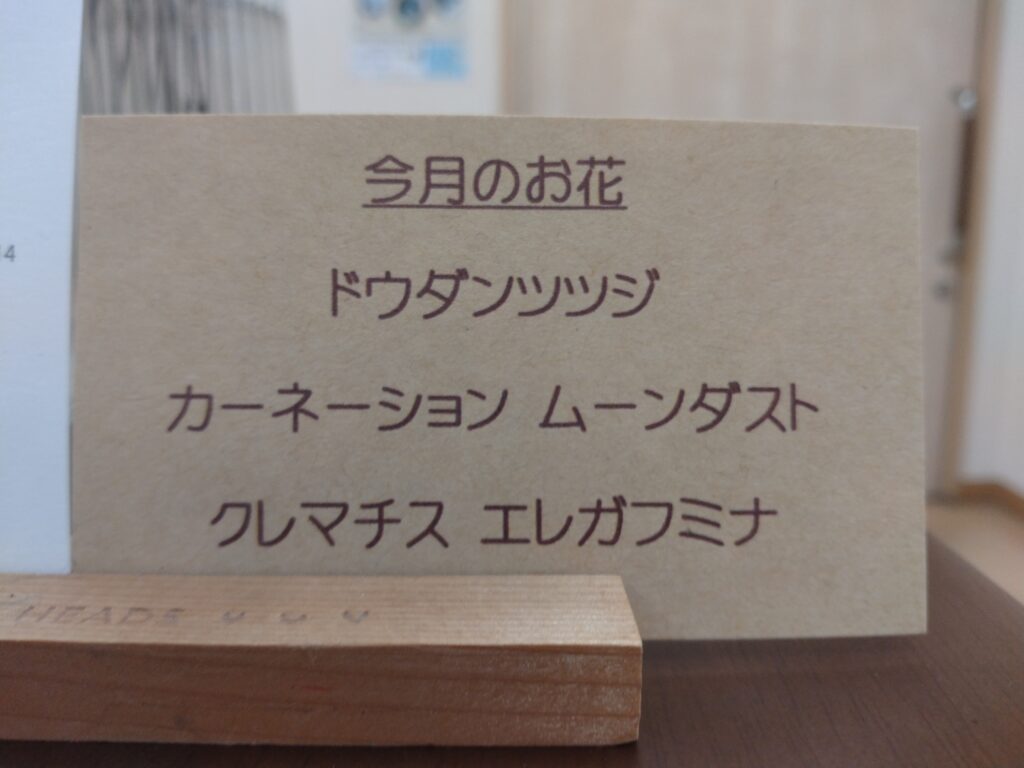 今月のお花
ドウダンツツジ
カーネーション ムーンダスト
クレマチス エレガフミナ
14
HEADS